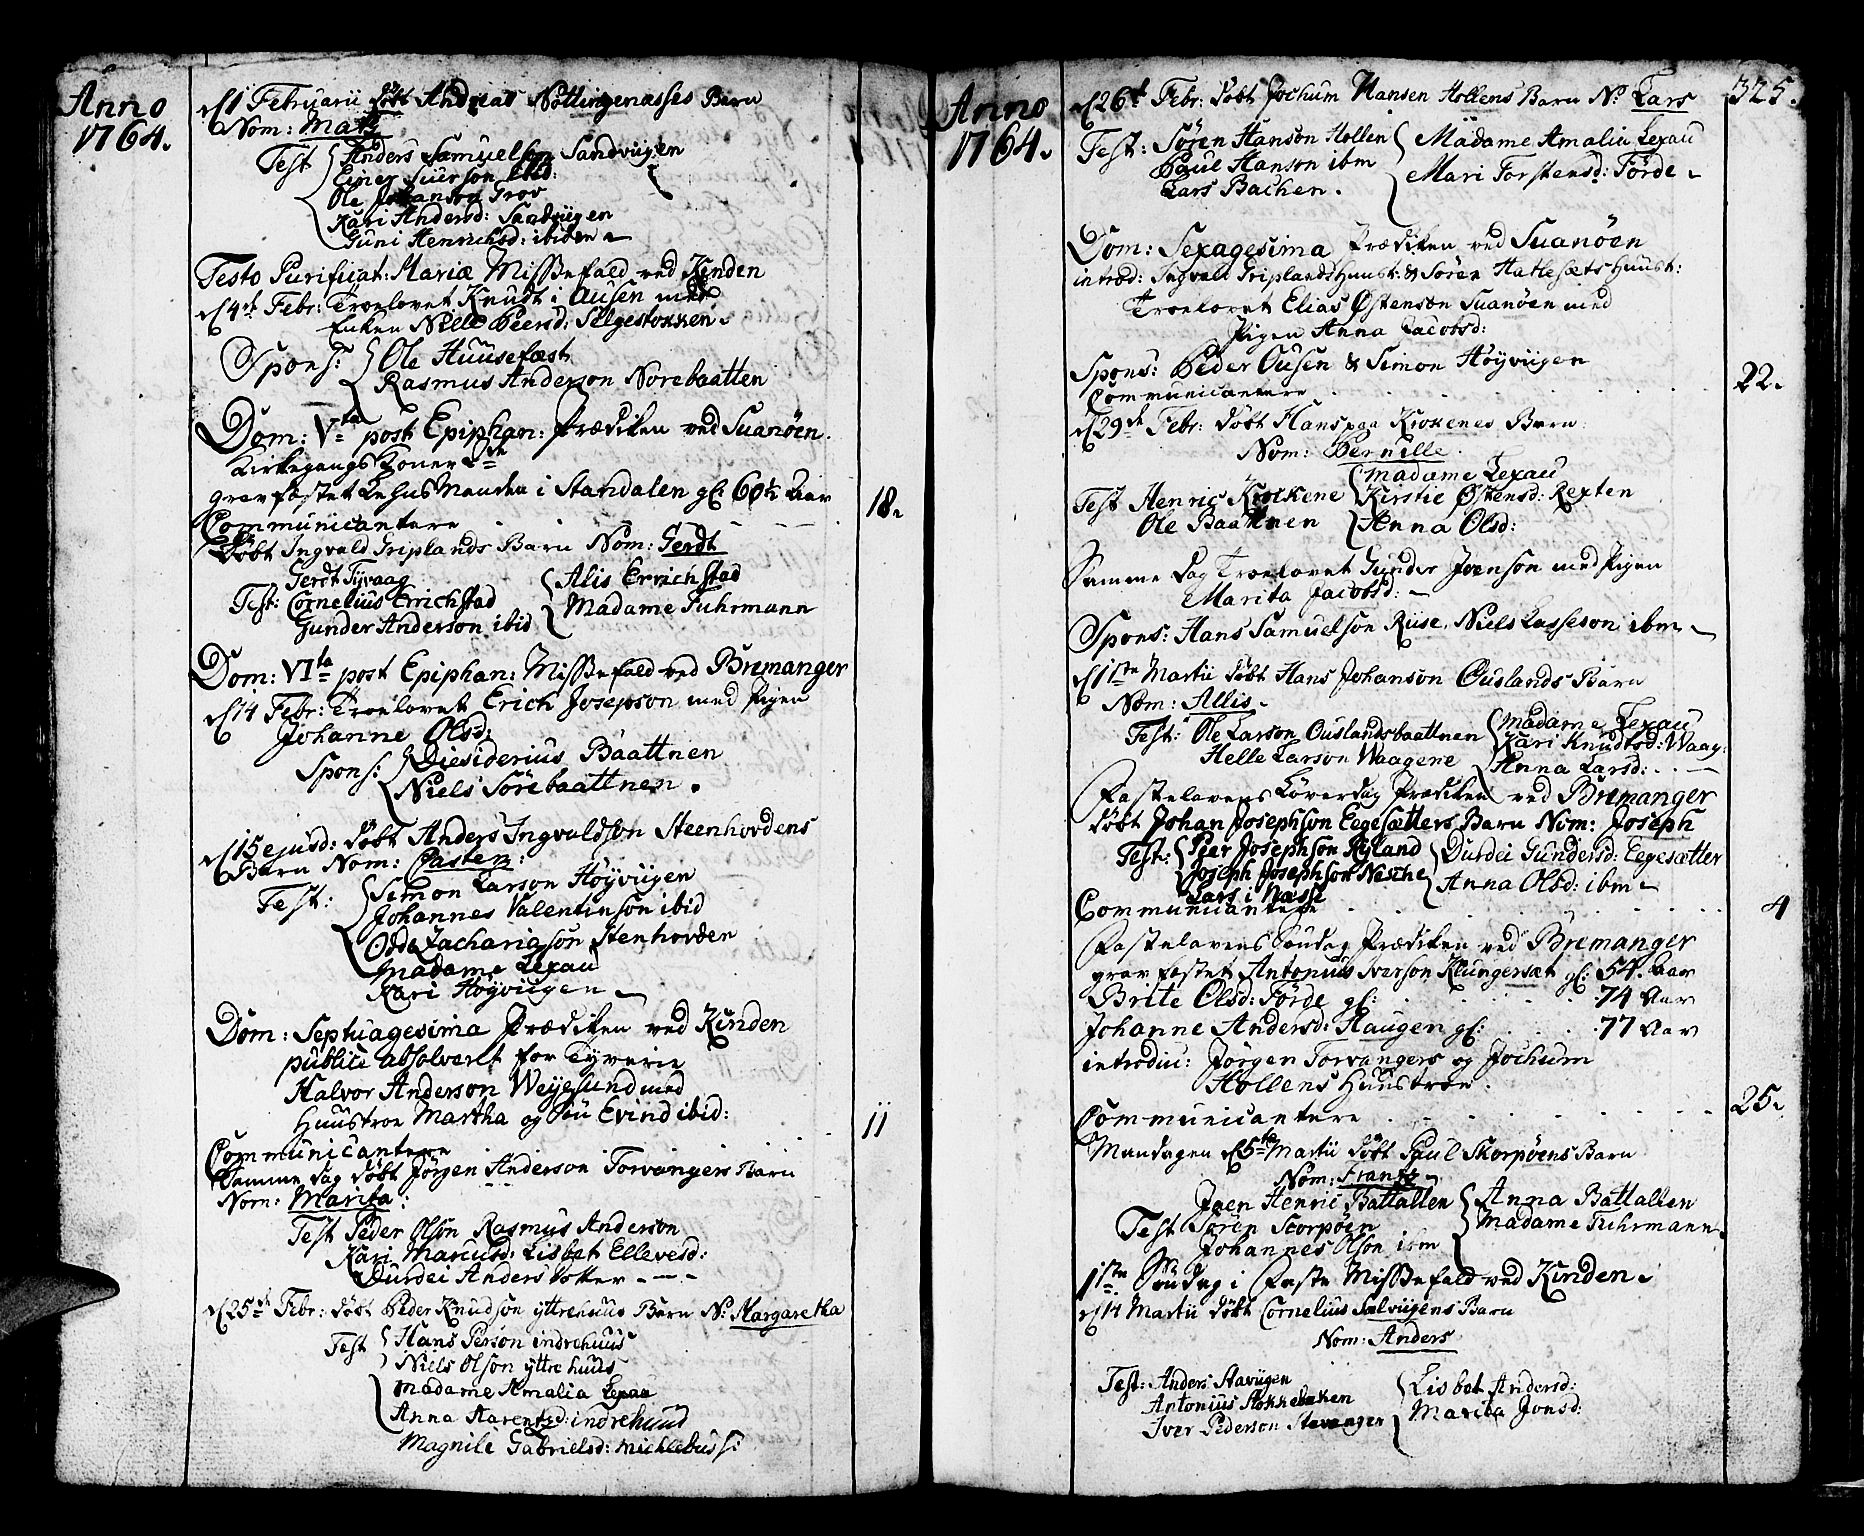 Anno
1764.
d 1 Februarii döbt Andreas Nöttingenesses Barn
Nom: Mats
Test Anders Samuelson Sandvigen
Einer Siverson ibid:
Ole Johanson Grov
Kari Andersd: Sandvigen
Guni Henrichsd: ibidem
Festo Purificat: Mariæ Missefald ved Kinden
d 4de Febr: Troelovet Knudt i Ausen med
Enken Nille Peersd: Selgestokken.
Spons: Ole Huusefæst
Rasmus Anderson Norebaatten
Dom: Vta post Epiphan: Prædiken ved Suanöen.
Kirkegangs Koner 2de
gravfæstet Lehns Manden i Standalen gl: 60½ Aar
Communicantere . . . 18.
Döbt Ingvald Griplands Barn Nom: Gerdt
Gerdt Tyvaag
Test: Cornelius Errichstad
Gunder Anderson ibid
Alis Errichstad
Madame Fuhrmann
Dom: VIta post Epiphan: Missefald ved Bremanger
d 14 Febr: Troelovet Erich Josepson med Pigen
Johanne Olsd:
Spons: Diesiderius Baattnen
Niels Sörebaattnen.
d 15 ejusd: döbt Anders Ingvaldson Steenhovdens
Barn Nom: Casten:
Test: Simon Larson Höyvigen
Johannes Valentinson ibid
Odde Zachariasson Stenhovden
Madame Lexau
Kari Höyvigen
Dom: Septuagesima Prædiken ved Kinden
publice absolveret for Tyverie
Halvor Anderson Weyesund med
Huustroe Martha og Sön Evind ibid:
Communicantere . . . 11
Samme dag döbt Jörgen Anderson Torvangers Barn
Nom: Marita:
Test Peder Olson Rasmus Anderson
Kari Marcusd: Lisbet Ellevesd:
Durdei Anders dotter
d 25de Febr: döbt Peder Knudson yttrehuus Barn N: Margaretha
Test Hans Person indrehuus
Niels Olson yttrehuus
Madame Amalia Lexau
Anna Aarentsd: indrehuus
Magnile Gabrielsd: Michlebuss:
Anno
1764.
325.
d 26de Febr: döbt Jochum Hansen Hollens Barn N: Lars
Test: Sören Hanson Hollen
Paul Hanson ibm
Lars Bachen.
Madame Amalia Lexau
Mari Torstensd: Förde
Dom: Sexagesima Prædiken ved Suanöen
introd: Ingvald Griplands Huust: & Sören Hatlesæts Huust:
Troelovet Elias Östenson Suanöen med
Pigen Anna Jacobsd:
Spons: Peder Ousen & Simon Höyviigen
Communicantere . . . 22.
d 29de Febr: döbt Hans paa Krokenes Barn
Nom: Pernille.
Test Henric Krokene
Ole Baattnen
Madame Lexau
Kirstie Östensd: Rexten
Anna Olsd:
Samme dag Troelovet Gunder Joenson med Pigen
Marita Jacobsd:
Spons: Hans Samuelson Riise, Niels Lasseson ibm
d 1ste Martii döbt Hans Johanson Ouslands Barn
Nom: Allis.
Test: Ole Larson Ouslandsbaattnen
Helle Larson Waagene
Madame Lexau
Kari Knudtsd: Waag:
Anna Larsd:
Fastelavens Löverdag Prædiken ved Bremanger
döbt Johan Josephson Eegesætters Barn Nom: Joseph
Test: Peer Josephson Ryland
Joseph Josephson Nesche
Lars i Nesse
Durdei Gundersd: Eegesætter
Anna Olsd: ibm
Communicantere . . . 4
Fastelavens Söndag Prædiken ved Bremanger
gravfæstet Antonius Iverson Klungersæt gl: 54. Aar
Brite Olsd: Förde gl: . . . 74 Aar
Johanne Andersd: Haugen gl: . . . 77 Aar
introduc: Jörgen Torvangers og Jochum
Hollens Huustroer.
Communicantere . . . 25.
Mandagen d 5te Martii döbt Paul Skorpöens Barn
Nom: Frantz
Test Joen Henric Battallen
Sören Scorpöen
Johannes Olson ibm
Anna Battallen
Madame Fuhrmann.
1ste Söndag i Faste Missefald ved Kinden.
d 14 Martii döbt Cornelius Sælviigens Barn
Nom: Anders
Test: Anders Stavigen
Antonius Stokkebeken
Iver Pederson Stavanger
Lisbet Andersd:
Marita Jonsd: